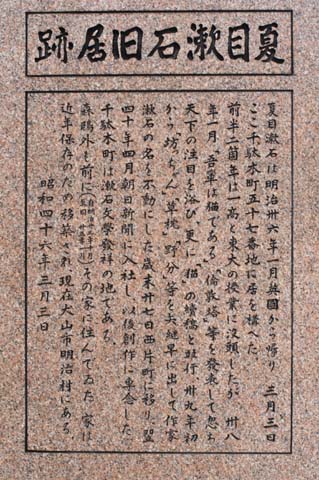 夏目漱石旧居跡
夏目漱石は明治卅六年一月英國から帰り 三月三日
ここ千駄木町五十七番地に居を構へた
前半二箇年は一高と東大の授業に没頭したが 卅八
年一月、「吾軰は猫である」「倫敦塔」等を發表して忽ち
天下の注目を浴び、更に「猫」の續稿と並行、卅九年初
から「坊っちゃん」「草枕」「野分」等を矢継早に出して作家
漱石の名を不動にした歳末廿七日西片町に移り、翌
四十年四月朝日新聞に入社し、以後創作に専念した
千駄木町は漱石文學發祥の地である
森鷗外も前に(自明治廿三年十月 至)その家に住んでゐた 家は
近年保存のため移築され、現在犬山市明治村にある
昭和四十六年三月三日